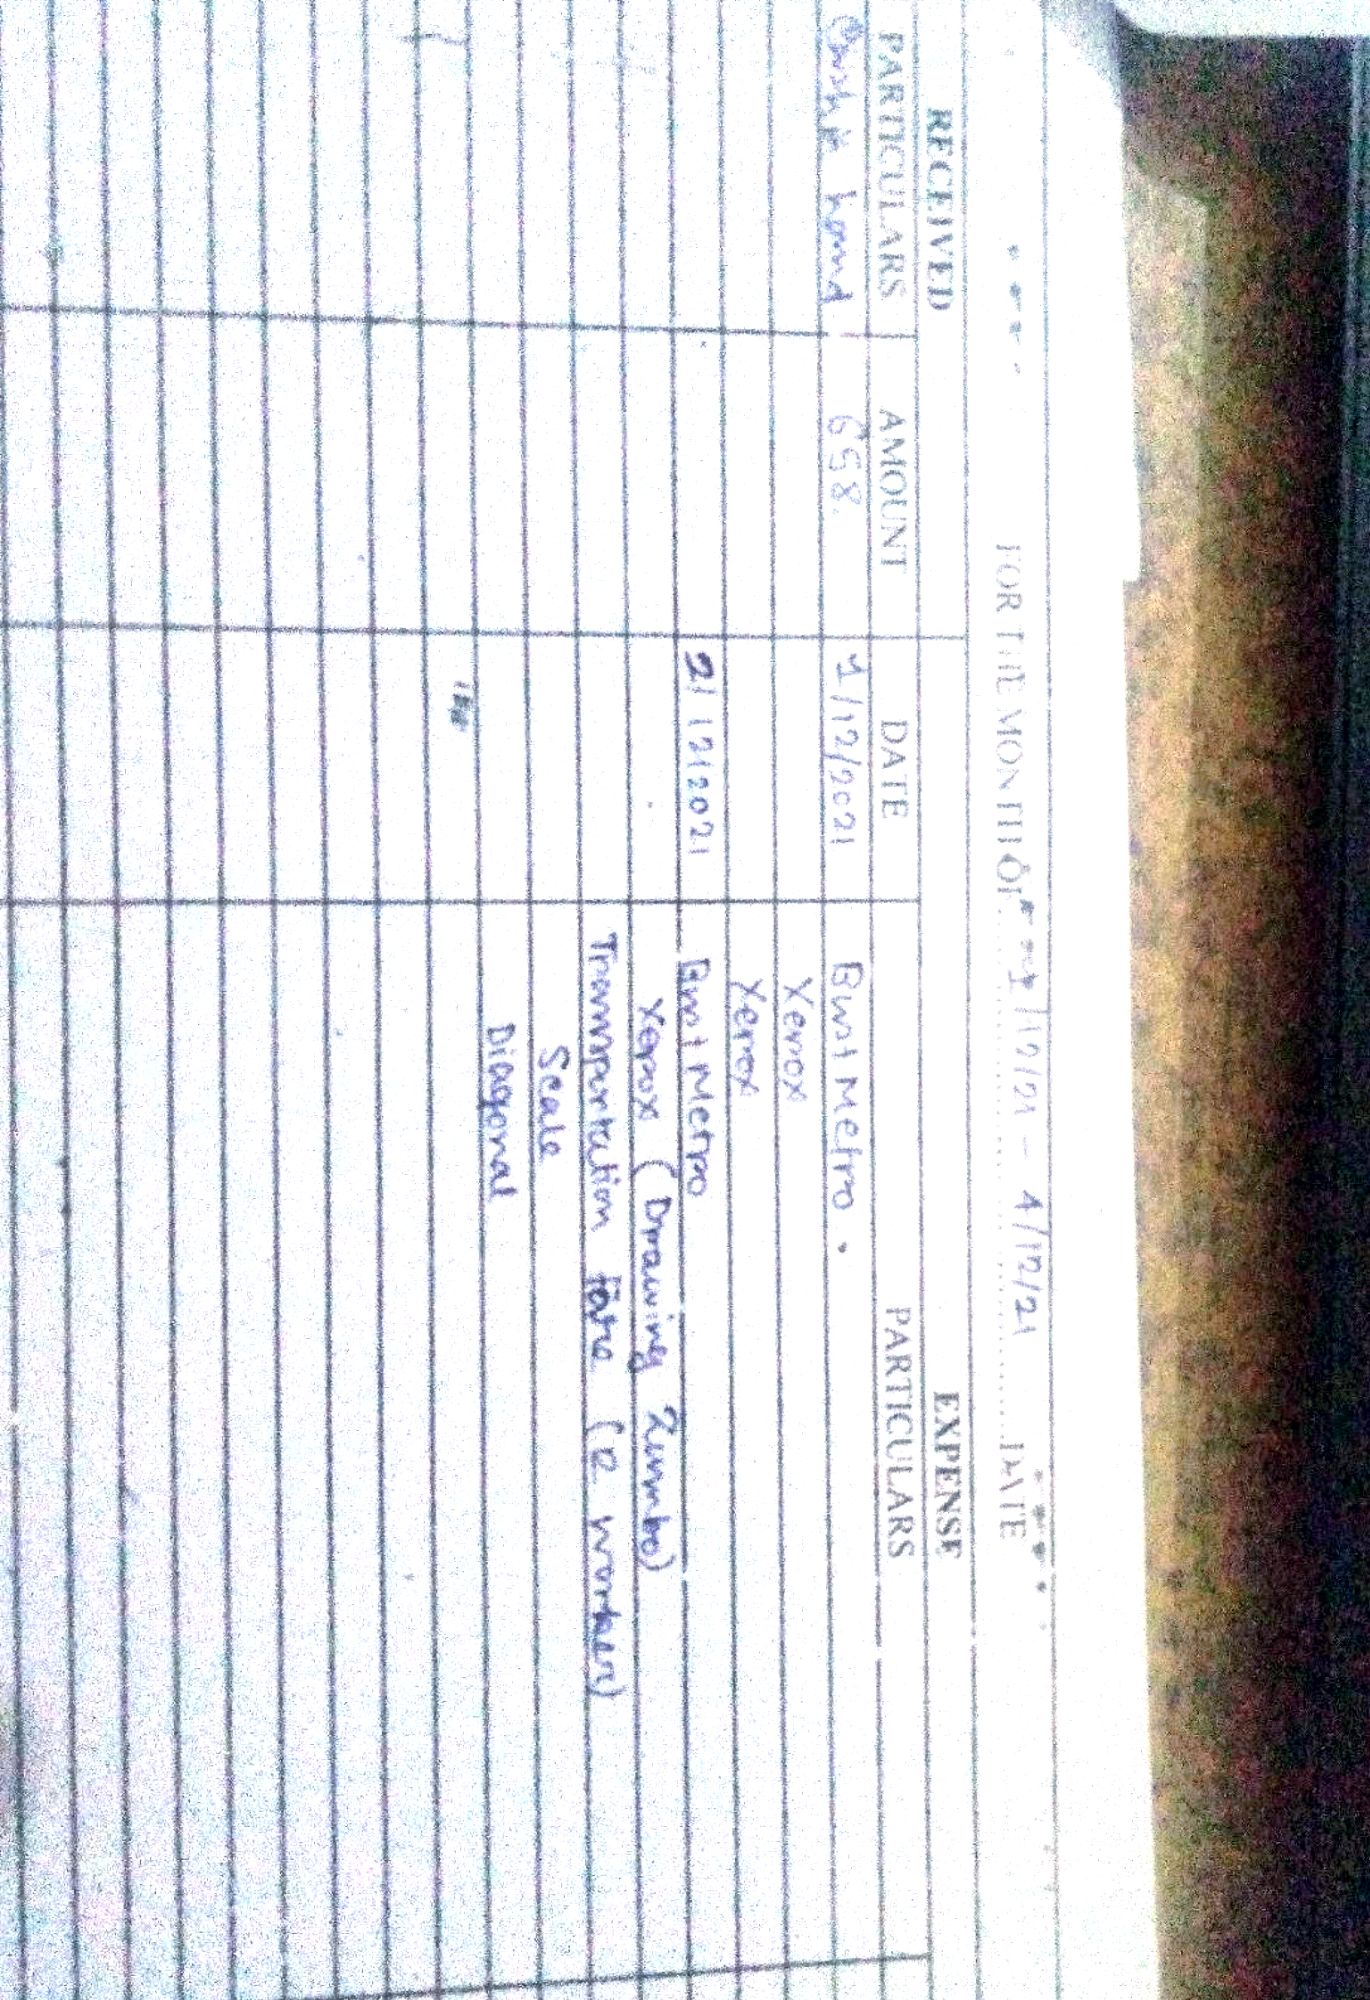 FOR THE MONTH OF 1/12/21 - 4/12/21 DATE
RECEIVED EXPENSE
PARTICULARS AMOUNT DATE PARTICULARS
hand 658 1/12/2021 Metro
Xerox
Xerox
2/12/2021 Metro
Xerox (Drawing
Transportation Fare (2 worker)
Scale
Diagonal